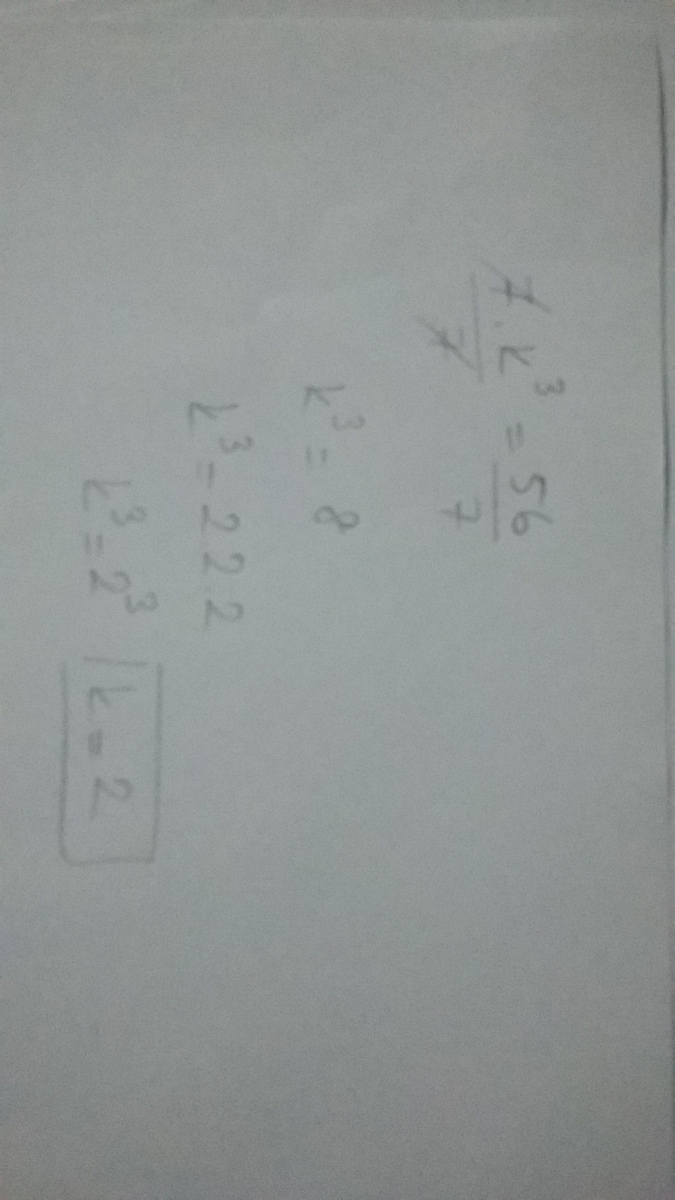 7.k³/7 = 56/7
k³ = 8
k³ = 2 2 2
k³ = 2³ | k = 2